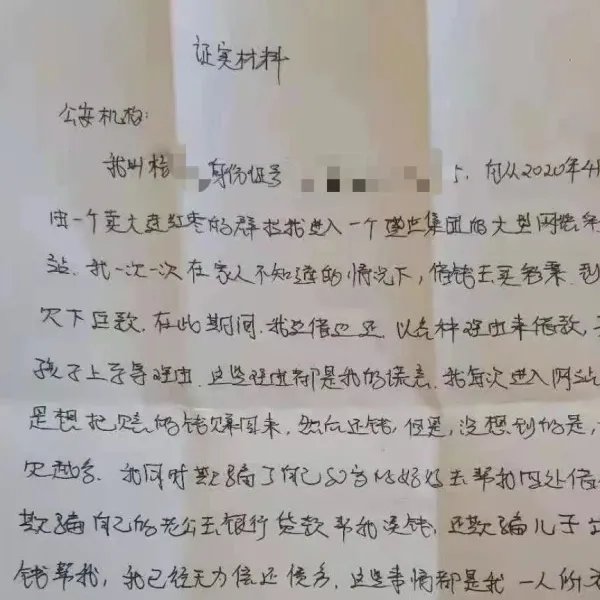 证实材料
公安机构:
我叫 身份证号 5. 自从2020年4
由一个卖大连红枣的群拉我进入一个 集团的大型网
站. 我一次一次在家人不知道的情况下, 借钱去买彩票. 到
欠下巨款. 在此期间. 我边借边还. 以各种理由来借款,
孩子上学等理由. 这些理由都是我的谎言. 我每次进入网站
是想把 的钱 回来. 然后还钱. 但是, 没想到的是,
欠越多. 我同时欺骗了自己80岁的 去帮我四处借
欺骗自己的老公去银行贷款帮我 钱, 还欺骗儿子
钱帮我, 我已经无力偿还债务. 这些事情都是我一人所